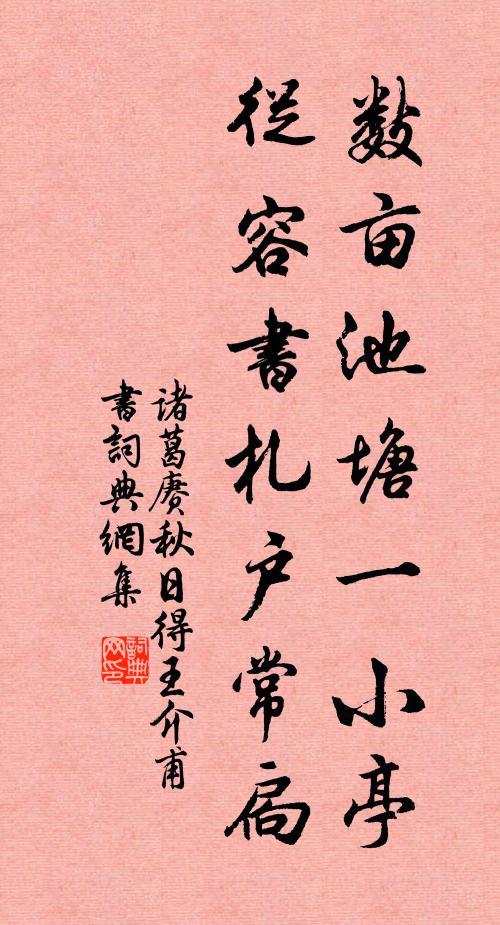 数亩池塘一小亭
從容書札户常扃
诸葛赓秋日得王介甫
書詞典網集
詞典网印